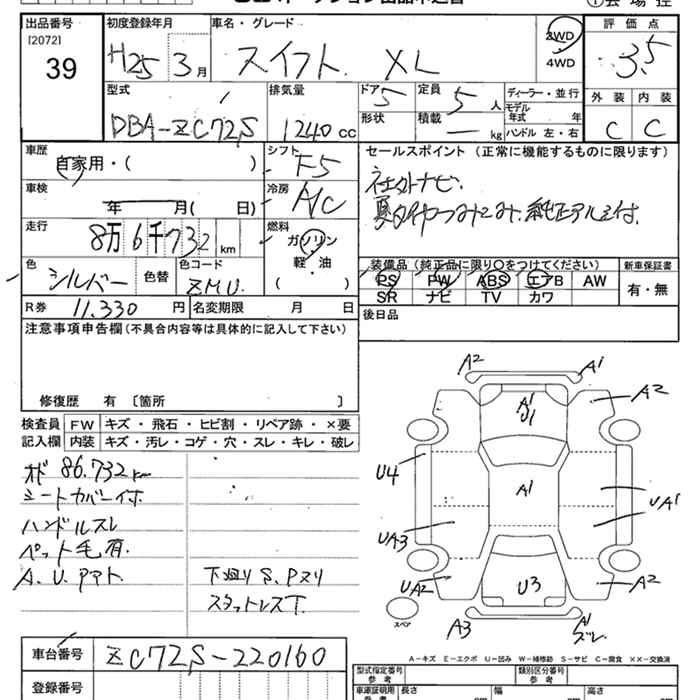 出品番号 初度登録年月 車名・グレード 2WD 4WD 評価点
[2072]
39 H25年3月 スイフト XL 3.5
型式 排気量 ドア 定員 ディーラー・並行 外装 内装
DBA-ZC72S 1240cc 5 5人 モデル年式 年 C C
形状 積載 ー kg ハンドル 左・右
車歴 シフト セールスポイント (正常に機能するものに限ります)
自家用・( ) F5 社外ナビ.
車検 年 月( 日) 冷房 A/C 夏タイヤつみこみ、純正アルミ付.
走行 8万6千732km 燃料 ガソリン 軽・油 ( )
装備品 (純正品に限り○をつけてください) 新車保証書
色 シルバー 色替 色コード ZMU PS PW ABS エアB AW 有・無
SR ナビ TV カワ
R券 11.330円 名変期限 月 日 後日品
注意事項申告欄(不具合内容等は具体的に記入して下さい)
修復歴 有 〔箇所 〕
検査員 FW キズ・飛石・ヒビ割・リペア跡・×要
記入欄 内装 キズ・汚レ・コゲ・穴・スレ・キレ・破レ
オド 86.732km
シートカバー付
ハンドルスレ
ペット毛有.
A.U.アト. 下廻りS.Pヌリ
スタットレスT.
A2 A1
A1 U1 A2
U4 A1 UA1
UA3
UA2 U3 A2
スペア A3 A1 ズレ
A-キズ E-エクボ U-凹み W-補修跡 S-サビ C-腐食 XX-交換済
車台番号 ZC72S-220160
型式指定番号 参考 類別区分番号 参考
登録番号 車庫証明用 参考 長さ cm 幅 cm 高さ cm